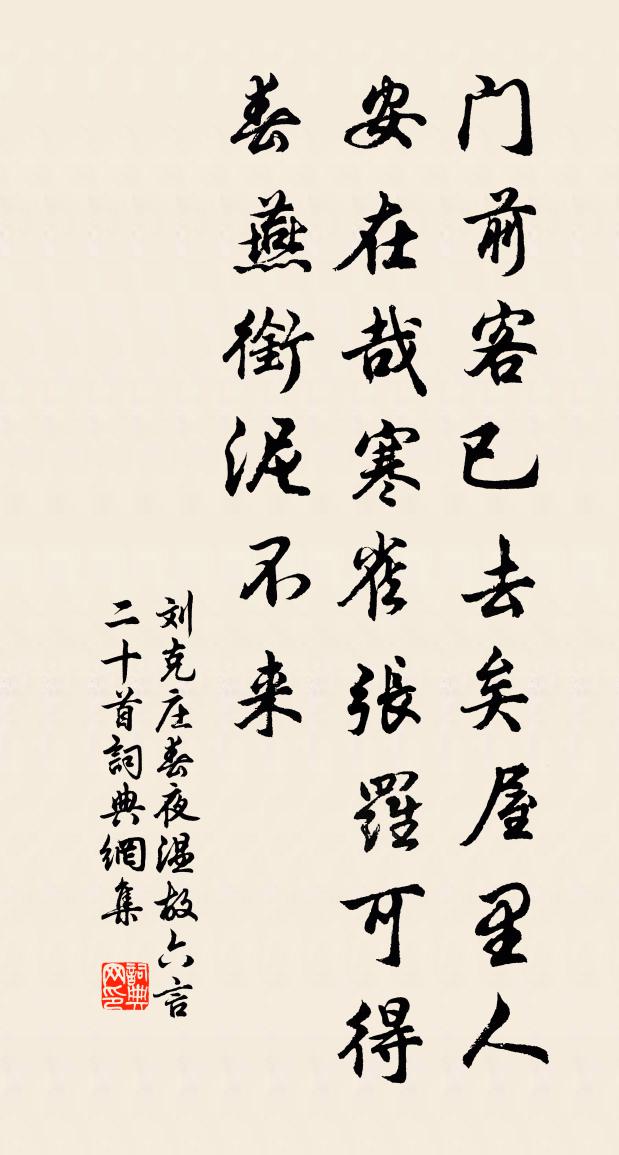 门前客已去矣屋里人
安在哉寒雀张羅可得
春燕銜泥不来
刘克庄春夜温故六言
二十首詞典網集
詞典网印